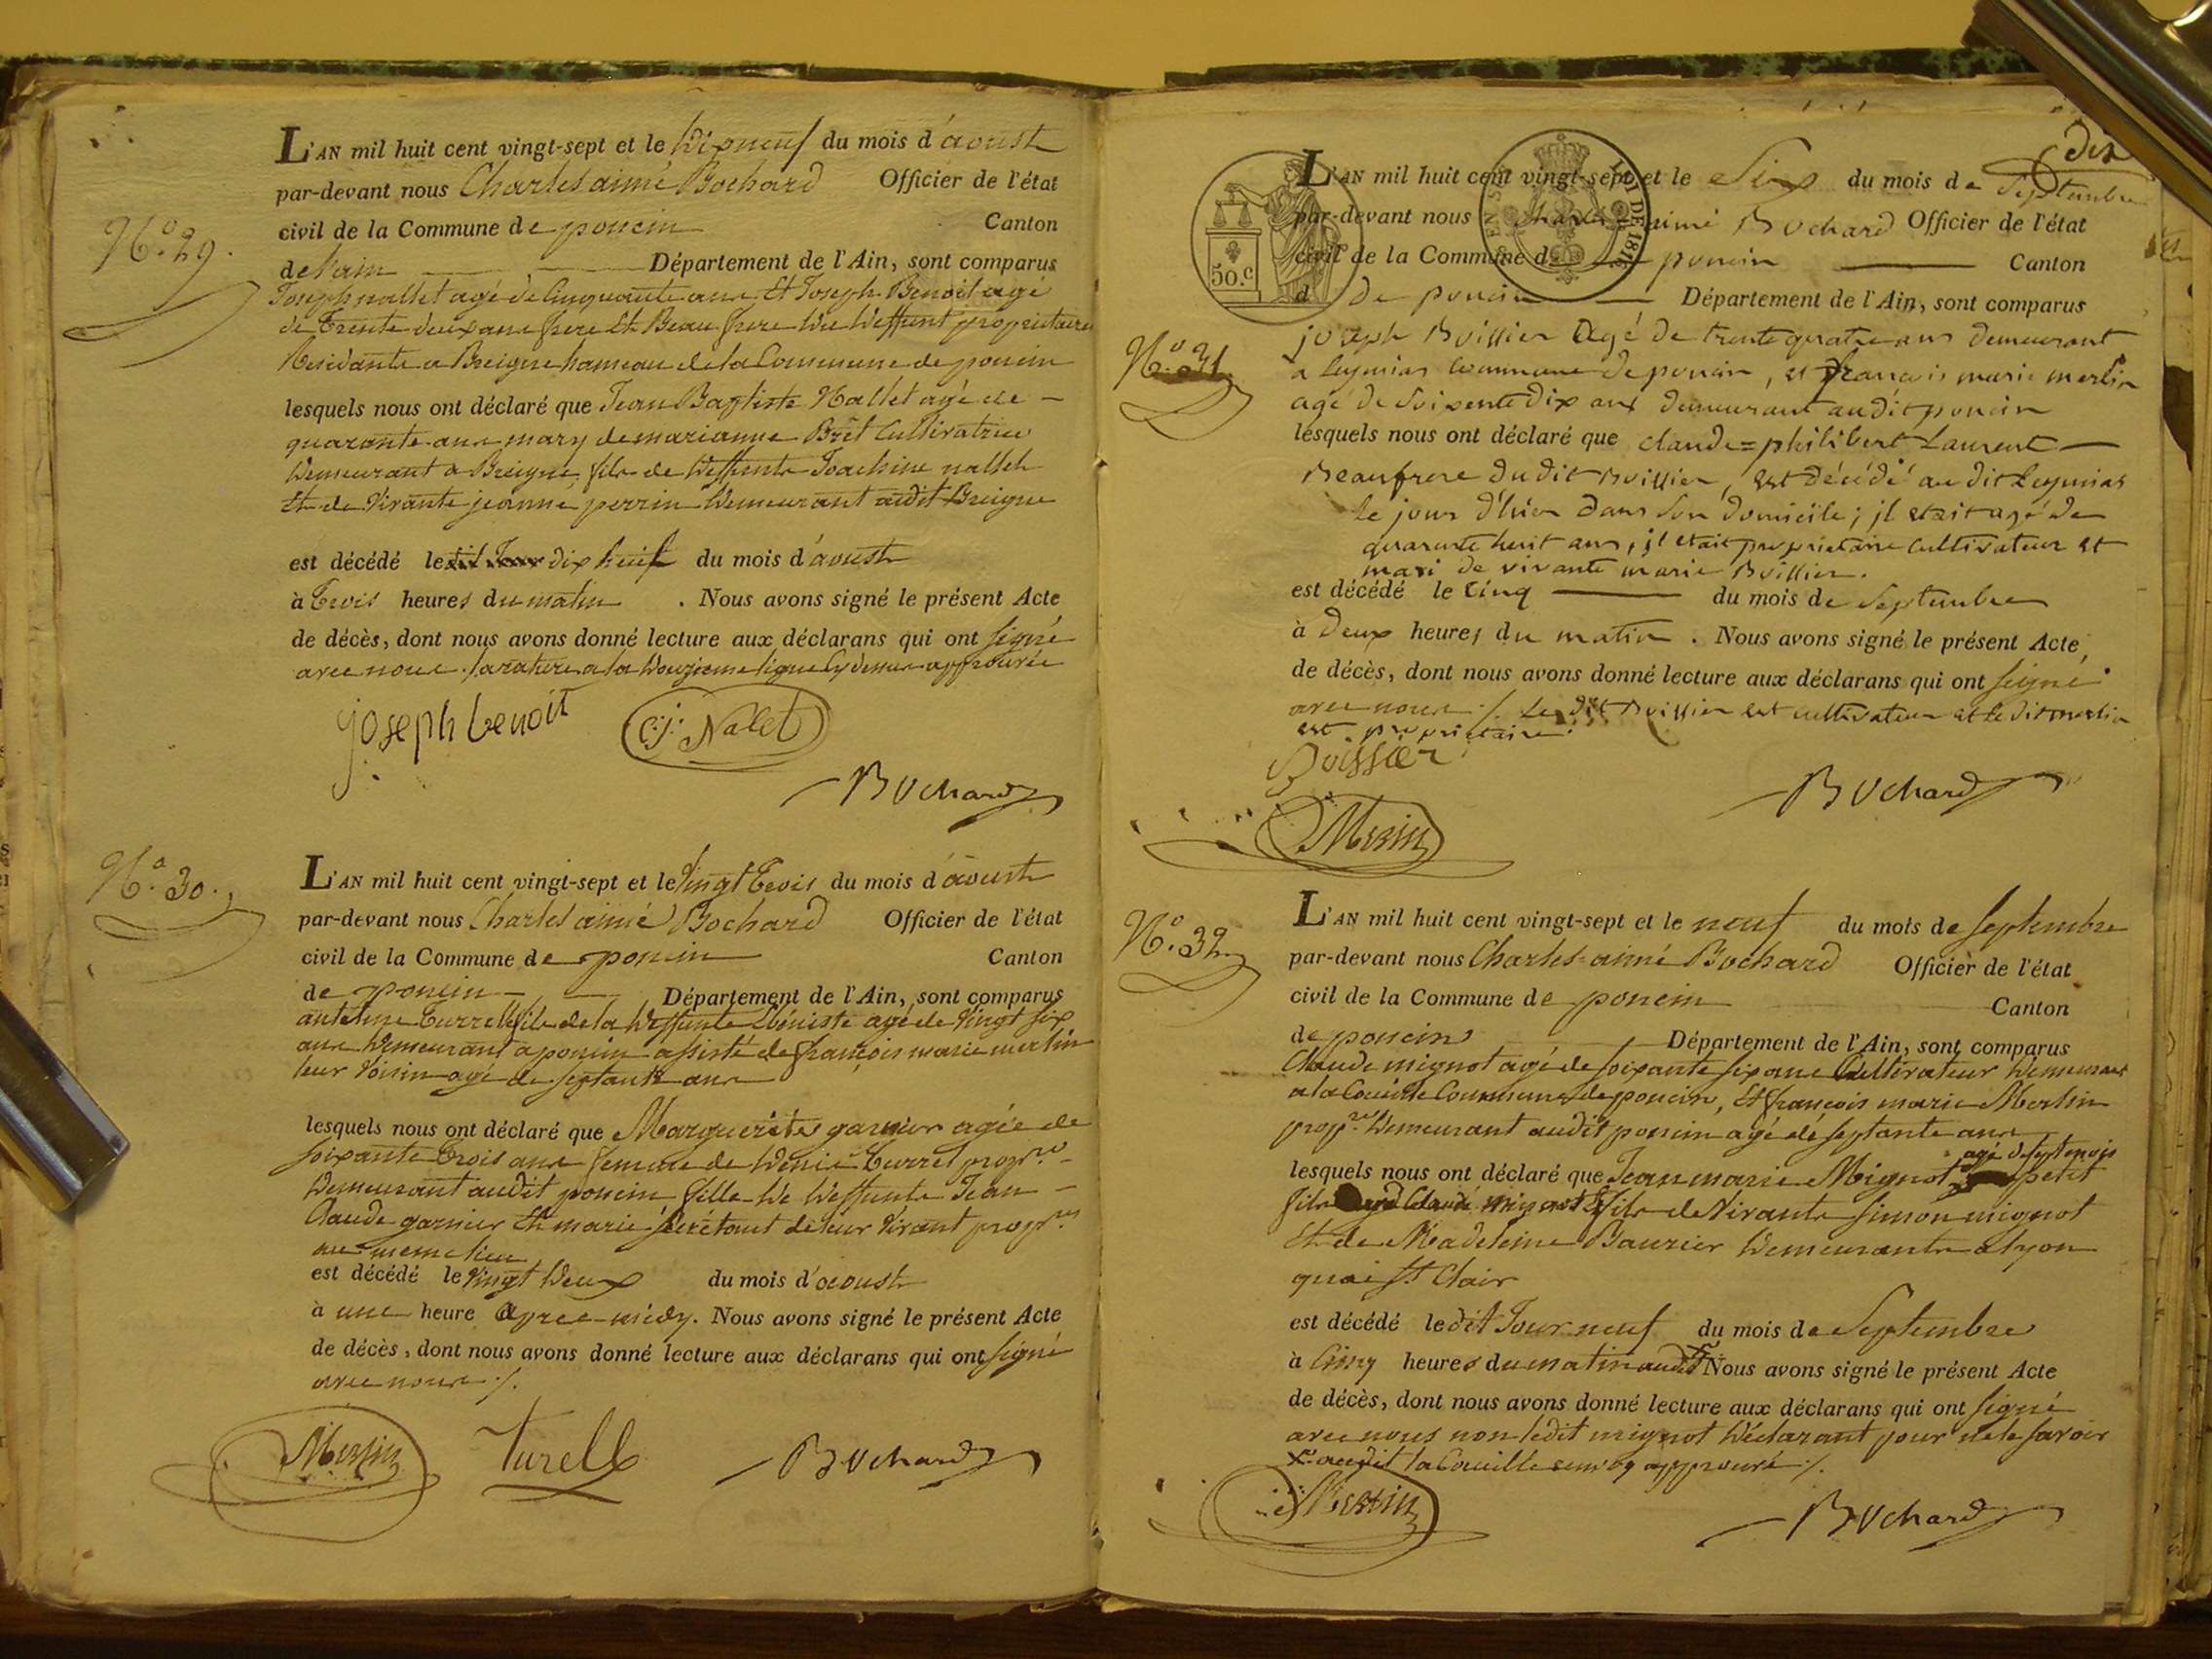 N.º 29.
L'AN mil huit cent vingt-sept et le dixneuf du mois d'aoust
par-devant nous Charles aimé Bochard Officier de l'état
civil de la Commune de poncin Canton
de l'ain Département de l'Ain, sont comparus
Joseph nallet agé de Cinquante ans, Et Joseph Benoit agé
de Trente deux ans frere Et Beau frere du deffunt propriétaires
Residants a Breigne hameau de la Commune de poncin
lesquels nous ont déclaré que Jean Baptiste Nallet agé de
quarante ans mary de marianne Bret Cultivatrice
demeurant a Breigne, fils de deffunts Joachim nallet
Et de Vivante jeanne perrin demeurant audit Breigne
est décédé le dix neuf du mois d'aoust
à Trois heures du matin . Nous avons signé le présent Acte
de décès, dont nous avons donné lecture aux déclarans qui ont signé
avec nous. la rature a la douzieme ligne Cy dessus approuvée
joseph benoit C.j. Nalet
Bochard
N.º 30.
L'AN mil huit cent vingt-sept et le Vingt Trois du mois d'aoust
par-devant nous Charles aimé Bochard Officier de l'état
civil de la Commune de poncin Canton
de poncin Département de l'Ain, sont comparus
antelme Turrel fils de la deffunte agé de Vingt six
ans demeurant a poncin assisté de françois marie merlin
leur Voisin agé de septante ans
lesquels nous ont déclaré que Marguerite garnier agée de
soixante Trois ans femme de denis Turrel prop.re
demeurant audit poncin fille de deffunts Jean
Claude garnier Et marie de leur Vivant prop.res
au meme lieu
est décédé le Vingt deux du mois d'aoust
à une heure apres midy. Nous avons signé le présent Acte
de décès, dont nous avons donné lecture aux déclarans qui ont signé
avec nous ./.
Merlin Turell Bochard
dix
50.C
N.º 31.
L'AN mil huit cent vingt-sept et le Six du mois de Septembre
par-devant nous Charles aimé Bochard Officier de l'état
civil de la Commune de poncin Canton
d de poncin Département de l'Ain, sont comparus
joseph Boissier agé de trente quatre ans demeurant
a leymiat Commune de poncin, et françois marie merlin
agé de soixente dix ans demeurant audit poncin
lesquels nous ont déclaré que claude=philibert Laurent
Beaufrere du dit Boissier, est décédé au dit Leymiat
le jour d'hier dans son domicile ; il etait agé de
quarante huit ans, il etait proprietaire cultivateur et
mari de vivante marie Boissier.
est décédé le Cinq du mois de Septembre
à deux heures du matin . Nous avons signé le présent Acte
de décès, dont nous avons donné lecture aux déclarans qui ont signé
avec nous ./. Le dit Boissier est cultivateur et le dit merlin
est proprietaire.
Boissier
Bochard
Merlin
N.º 32
L'AN mil huit cent vingt-sept et le neuf du mois de septembre
par-devant nous Charles-aimé Bochard Officier de l'état
civil de la Commune de poncin Canton
de poncin Département de l'Ain, sont comparus
Claude mignot agé de soixante six ans Cultivateur demeurant
a la Coueille Commune de poncin, Et françois marie Merlin
prop.re demeurant audit poncin agé de septante ans
agé de sept mois
lesquels nous ont déclaré que Jean marie Mignot petit
fils Claude mignot fils de Vivants simon mignot
Et de Madeleine Baurier demeurants a lyon
quai St Clair
est décédé le dit Jour neuf du mois de Septembre
à Cinq heures du matin audit Nous avons signé le présent Acte
de décès, dont nous avons donné lecture aux déclarans qui ont signé
avec nous non ledit mignot déclarant pour ne le savoir
x audit la Coueille renvoy approuvé ./.
Merlin
Bochard